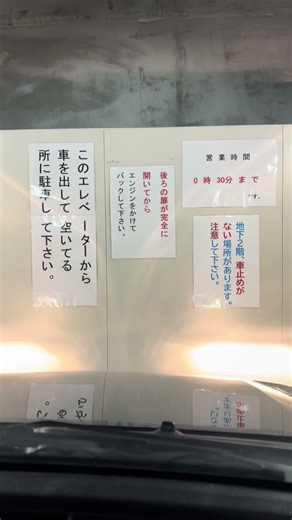 このエレベーターから
車を出して空いてる
所に駐車して下さい。
後ろの扉が完全に
開いてから
エンジンをかけて
バックして下さい。
営業時間
0時30分まで
です。
地下2階、車止めが
ない場所があります。
注意して下さい。